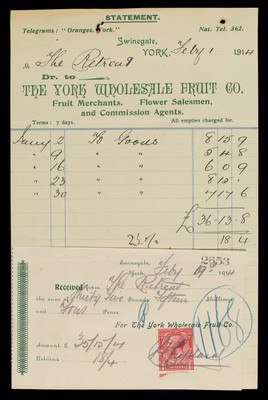 STATEMENT.
Telegrams: "Oranges, York." Nat. Tel. 362.
Swinegate,
YORK, Feby 1 1914
M The Retreat
Dr. to
THE YORK WHOLESALE FRUIT CO.
Fruit Merchants. Flower Salesmen,
and Commission Agents.
Terms: 7 days. All empties charged for.
Jany 2 To Goods 8 15 9
" 9 " " 5 4 8
" 16 " " 6 0 9
" 23 " " 8 15
" 30 " " 7 17 6
£ 36-13-8
2½% 18 4
2653
Swinegate,
York, Feby 1914
Received from The Retreat
the sum of Thirty Five Pounds Fifteen Shillings
and Four Pence.
For The York Wholesale Fruit Co.
Amount £ 35/15/4
Returns 18/4